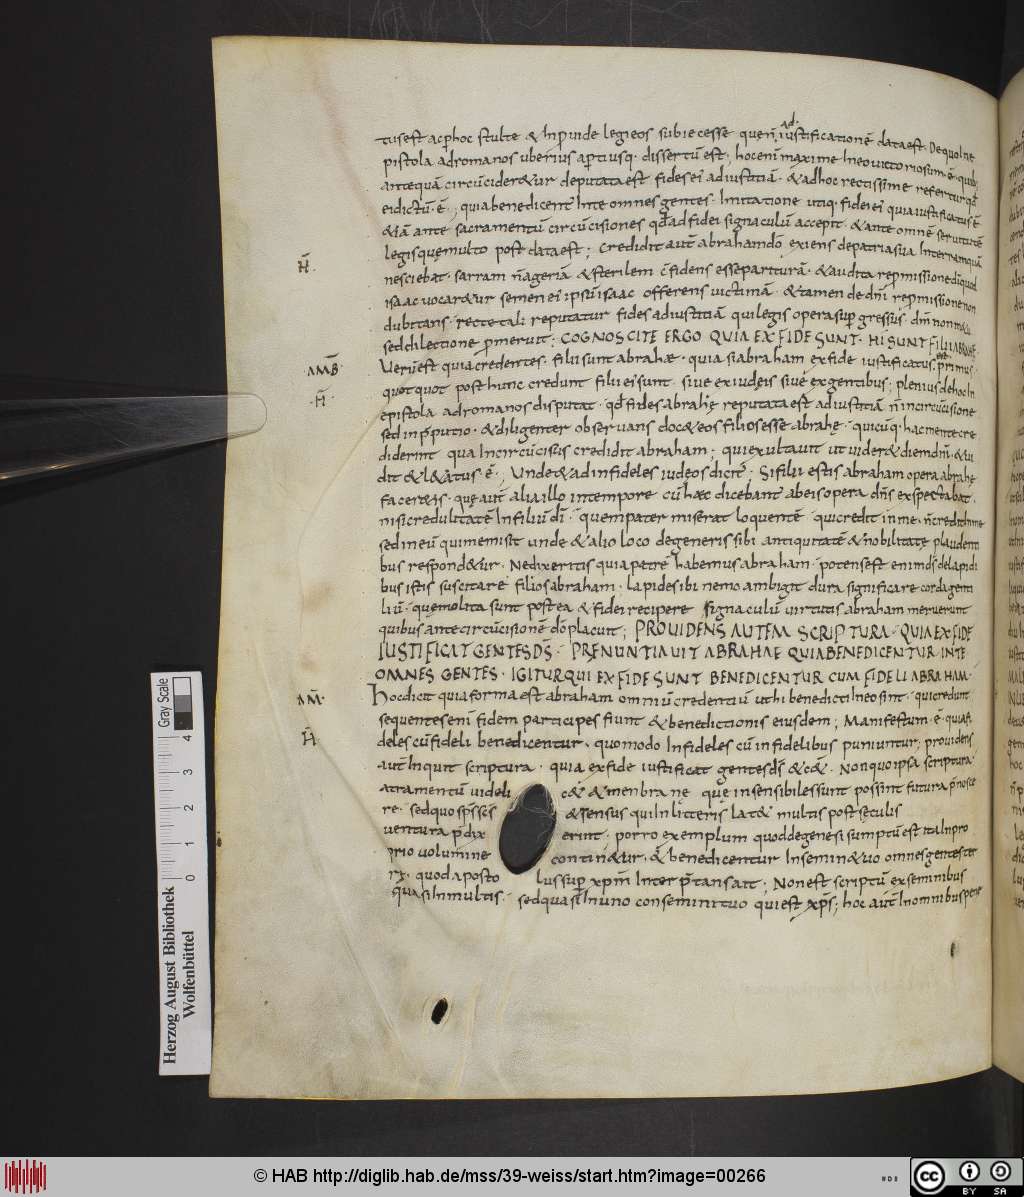 ad
tus est ac p hoc stulte & Inprouide legi eos subiecesse quen̄ iustificationē data est. De quo Ine
pistola ad romanos uberius aptiusq· dissertū est, hoc enī maxime Ineo uictoriosum ē· quib;
antequā circūcider&ur deputata est fides ei ad iustitiā · & ad hoc rectissime refertur qd̄
ei dictū ē ; quia benedicent̄ In te omnes gentes · Imitatione utiq· fidei ei quia iustificatus ē
&iā ante sacramentū circūcisiones qd̄ ad fidei signaculū accepit · & ante omnē seruitutē
legis que multo post data est ; Credidit aut̄ abraham dō exiens de patria sua In terram quā
H̄
nesciebat · sarram n̄ ageriā & sterilem c̄fidens esse parituram · & audita repromissione d̄i quod
isaac uocar&ur semen ei ipsū isaac offerens uictimā · & tamen de dn̄i repromissione non
dubitans · recte tali reputatur fides ad iustitiā qui legis opera supgressus · dm̄ non m&u
sed dilectione p̄meruit ; COGNOSCITE ERGO QUIA EX FIDE SUNT · HI SUNT FILII ABRAHE
AMB̄
Uerū est quia credentes · filii sunt abrahæ · quia si abraham ex fide iustificatus est primus
H̄
quotquot post hunc credunt filii ei sunt · siue ex iudęis siue ex gentibus ; plenius de hoc In
epistola ad romanos disputat · qd̄ fides abrahę reputata est ad iustitiā n̄ in circūcisione
sed in p̄putio · & diligenter obseruans doc& eos filios esse abrahę · quicūq· hac mente cre
diderint qua Incircūcisus credidit abraham ; qui exultauit ut uider& diem dn̄i · & ui
dit & l&atus ē ; Unde & ad infideles iudeos dicit̄ · Si filii estis abraham opera abrahę
facer&is · quę aut̄ alia illo in tempore cū hæc diceban̄t ab eis opera dn̄s exspectabat ·
nisi credulitatē In filiū d̄i · quem pater miserat loquentē · qui credit in me · n̄ credit In me
sed in eū qui me misit unde & alio loco degeneris sibi antiquitatē & nobilitatę plaudenti
bus respond&ur · Ne dixeritis quia patrē habemus abraham · potens est enim d̄s de lapidi
bus istis suscitare filios abraham · lapides ibi nemo ambigit dura significare corda genti
liū · quę molita sunt post ea & fidei recipere signaculū uirtutis abraham meruerunt
quibus ante circūcisionē dō placuit ; PROUIDENS AUTEM SCRIPTURA · QUIA EX FIDE
IUSTIFICAT GENTES D̄S · PRĘNUNTIAUIT ABRAHAE QUIA BENEDICENTUR IN TE
OMNES GENTES · IGITUR QUI EX FIDE SUNT BENEDICENTUR CUM FIDELI ABRAHAM ·
AM̄·
Hoc dicit quia forma est abraham omniū credentiū ut hi benedicti Ineo sint · qui credunt
sequentes enī fidem participes fiunt & benedictionis eiusdem ; Manifestum ē · quia fi
H̄
deles cū fideli benedicentur · quomodo Infideles cū infidelibus puniuntur ; prouidens
aut̄ Inquit scriptura · quia ex fide iustificat gentes d̄s & c&̄ · Non quo ipsa scriptura ·
atramentū uideli c& & menbranę quę insensibiles sunt possint futura p̄nosce
re · sed quo sp̄s scs & sensus qui In litteris lat& multis post seculis
uentura p̄dix erint · porro exemplum quod de genesi sumptū est ita In pro
prio uolumine contin&ur · & benedicentur In semin& uo omnes gentes ter
rę · quod aposto lus sup xp̄m Inter p̄tans ait ; Non est scriptū ex seminibus
quasi In multis · sed quasi In uno con semini tuo qui est xp̄s ; hoc aut̄ In omnibus pene
Gray Scale
0 1 2 3 4
Herzog August Bibliothek
Wolfenbüttel
© HAB http://diglib.hab.de/mss/39-weiss/start.htm?image=00266
cc BY SA